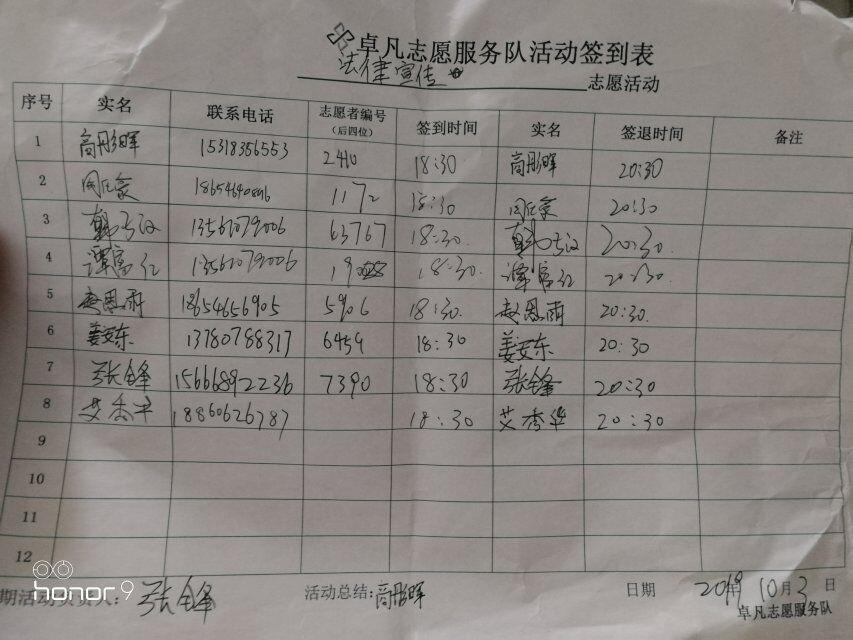 卓凡志愿服务队活动签到表
法律宣传 志愿活动
序号 实名 联系电话 志愿者编号（后四位） 签到时间 实名 签退时间 备注
1 高彤晖 15318356553 2410 18:30 高彤晖 20:30
2 1172 18:30 20:30
3 13561079006 63767 18:30 20:30
4 谭富红 13561079006 18:30 谭富红 20:30
5 赵恩雨 18654656905 5906 18:30 赵恩雨 20:30
6 姜安东 13780788317 6459 18:30 姜安东 20:30
7 张锋 15666892236 7390 18:30 张锋 20:30
8 艾秀华 18860626787 18:30 艾秀华 20:30
9
10
11
12
期活动负责人：张锋 活动总结：高彤晖 日期 2019年10月3日
卓凡志愿服务队
honor 9